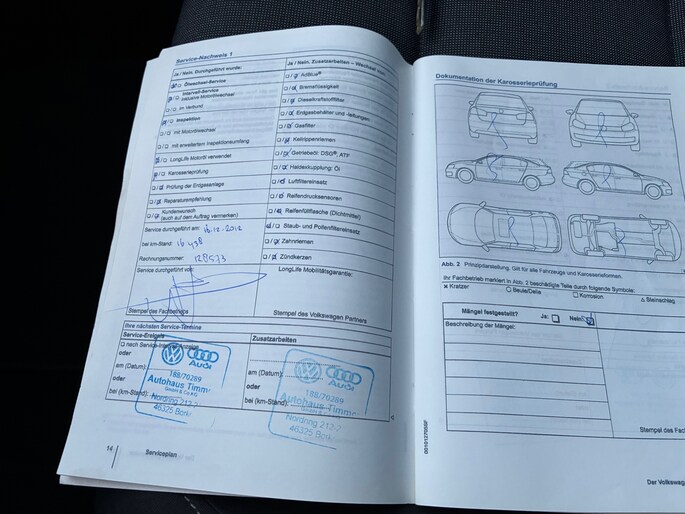 Service-Nachweis 1
Ja / Nein. Durchgeführt wurde:
Ölwechsel-Service
Intervall-Service
inklusive Motorölwechsel
im Verbund
Inspektion
mit Motorölwechsel
mit erweitertem Inspektionsumfang
LongLife Motoröl verwendet
Karosserieprüfung
Prüfung der Erdgasanlage
Reparaturempfehlung
Kundenwunsch
(auch auf dem Auftrag vermerken)
Service durchgeführt am: 16.12.2012
bei km-Stand: 16.438
Rechnungsnummer: 128573
Service durchgeführt von:
Stempel des Fachbetriebs
Ja / Nein. Zusatzarbeiten – Wechsel von:
AdBlue®
Bremsflüssigkeit
Dieselkraftstofffilter
Erdgasbehälter und -leitungen
Gasfilter
Keilrippenriemen
Getriebeöl: DSG®, ATF
Haldexkupplung: Öl
Luftfiltereinsatz
Reifendrucksensoren
Reifenfüllflasche (Dichtmittel)
Staub- und Pollenfiltereinsatz
Zahnriemen
Zündkerzen
LongLife Mobilitätsgarantie:
Stempel des Volkswagen Partners
Ihre nächsten Service-Termine
Service-Ereignis
nach Service-Intervall-Anzeige
oder
am (Datum):
oder
bei (km-Stand):
Zusatzarbeiten
am (Datum):
oder
bei (km-Stand):
Audi
188/70289
Autohaus Timm
GmbH & Co.KG
Nordring 212-2
46325 Bork
Audi
188/70289
Autohaus Timm
GmbH & Co.KG
Nordring 212-2
46325 Bork
14
Serviceplan
Dokumentation der Karosserieprüfung
Abb. 2 Prinzipdarstellung. Gilt für alle Fahrzeuge und Karosserieformen.
Fachbetrieb markiert in Abb. 2 beschädigte Teile durch folgende Symbole:
x Kratzer
Beule/Delle
Korrosion
Steinschlag
Mängel festgestellt?
Ja:
Nein:
Beschreibung der Mängel:
Stempel des Fac
Der Volkswage